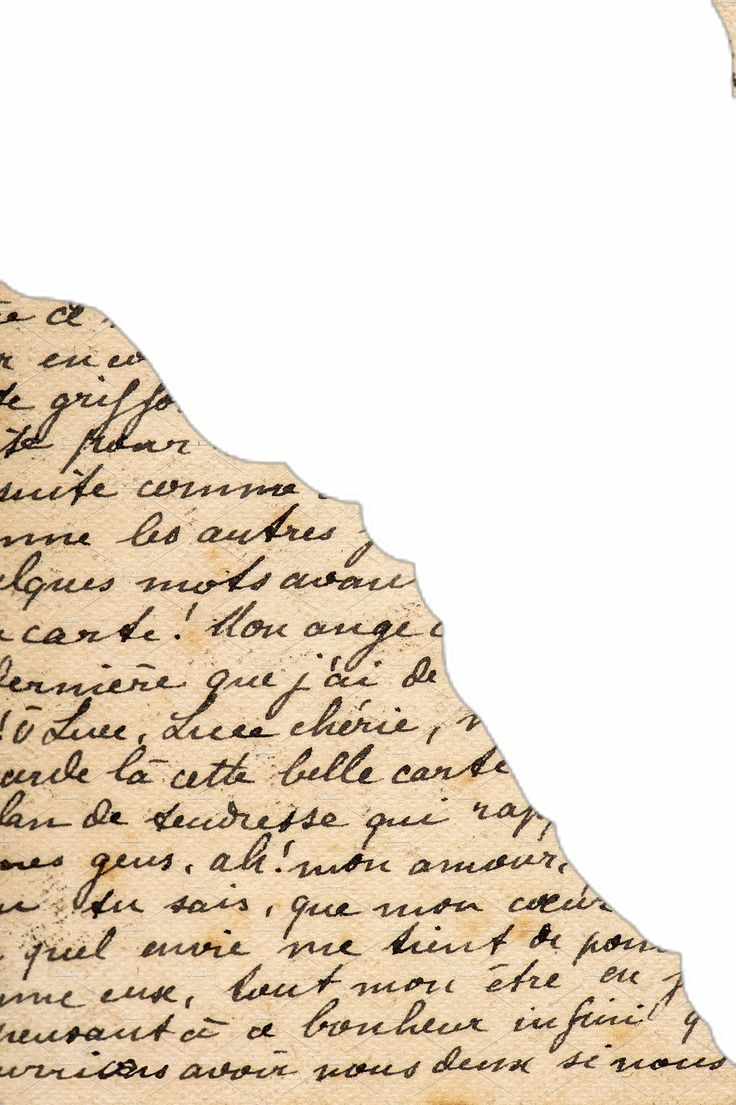 ce
r enco
de griffo
pour
suite comme
les autres
elques mots avan
carte! Mon ange
dernière que j'ai de
! Ô Luce, Luce chérie,
arde là cette belle carte
lan de tendresse qui rapp
gens, ah! mon amour,
tu sais, que mon cœur
quel envie me tient de
mme eux, tout mon être en
pensant à ce bonheur infini q
urrions avoir nous deux si nous